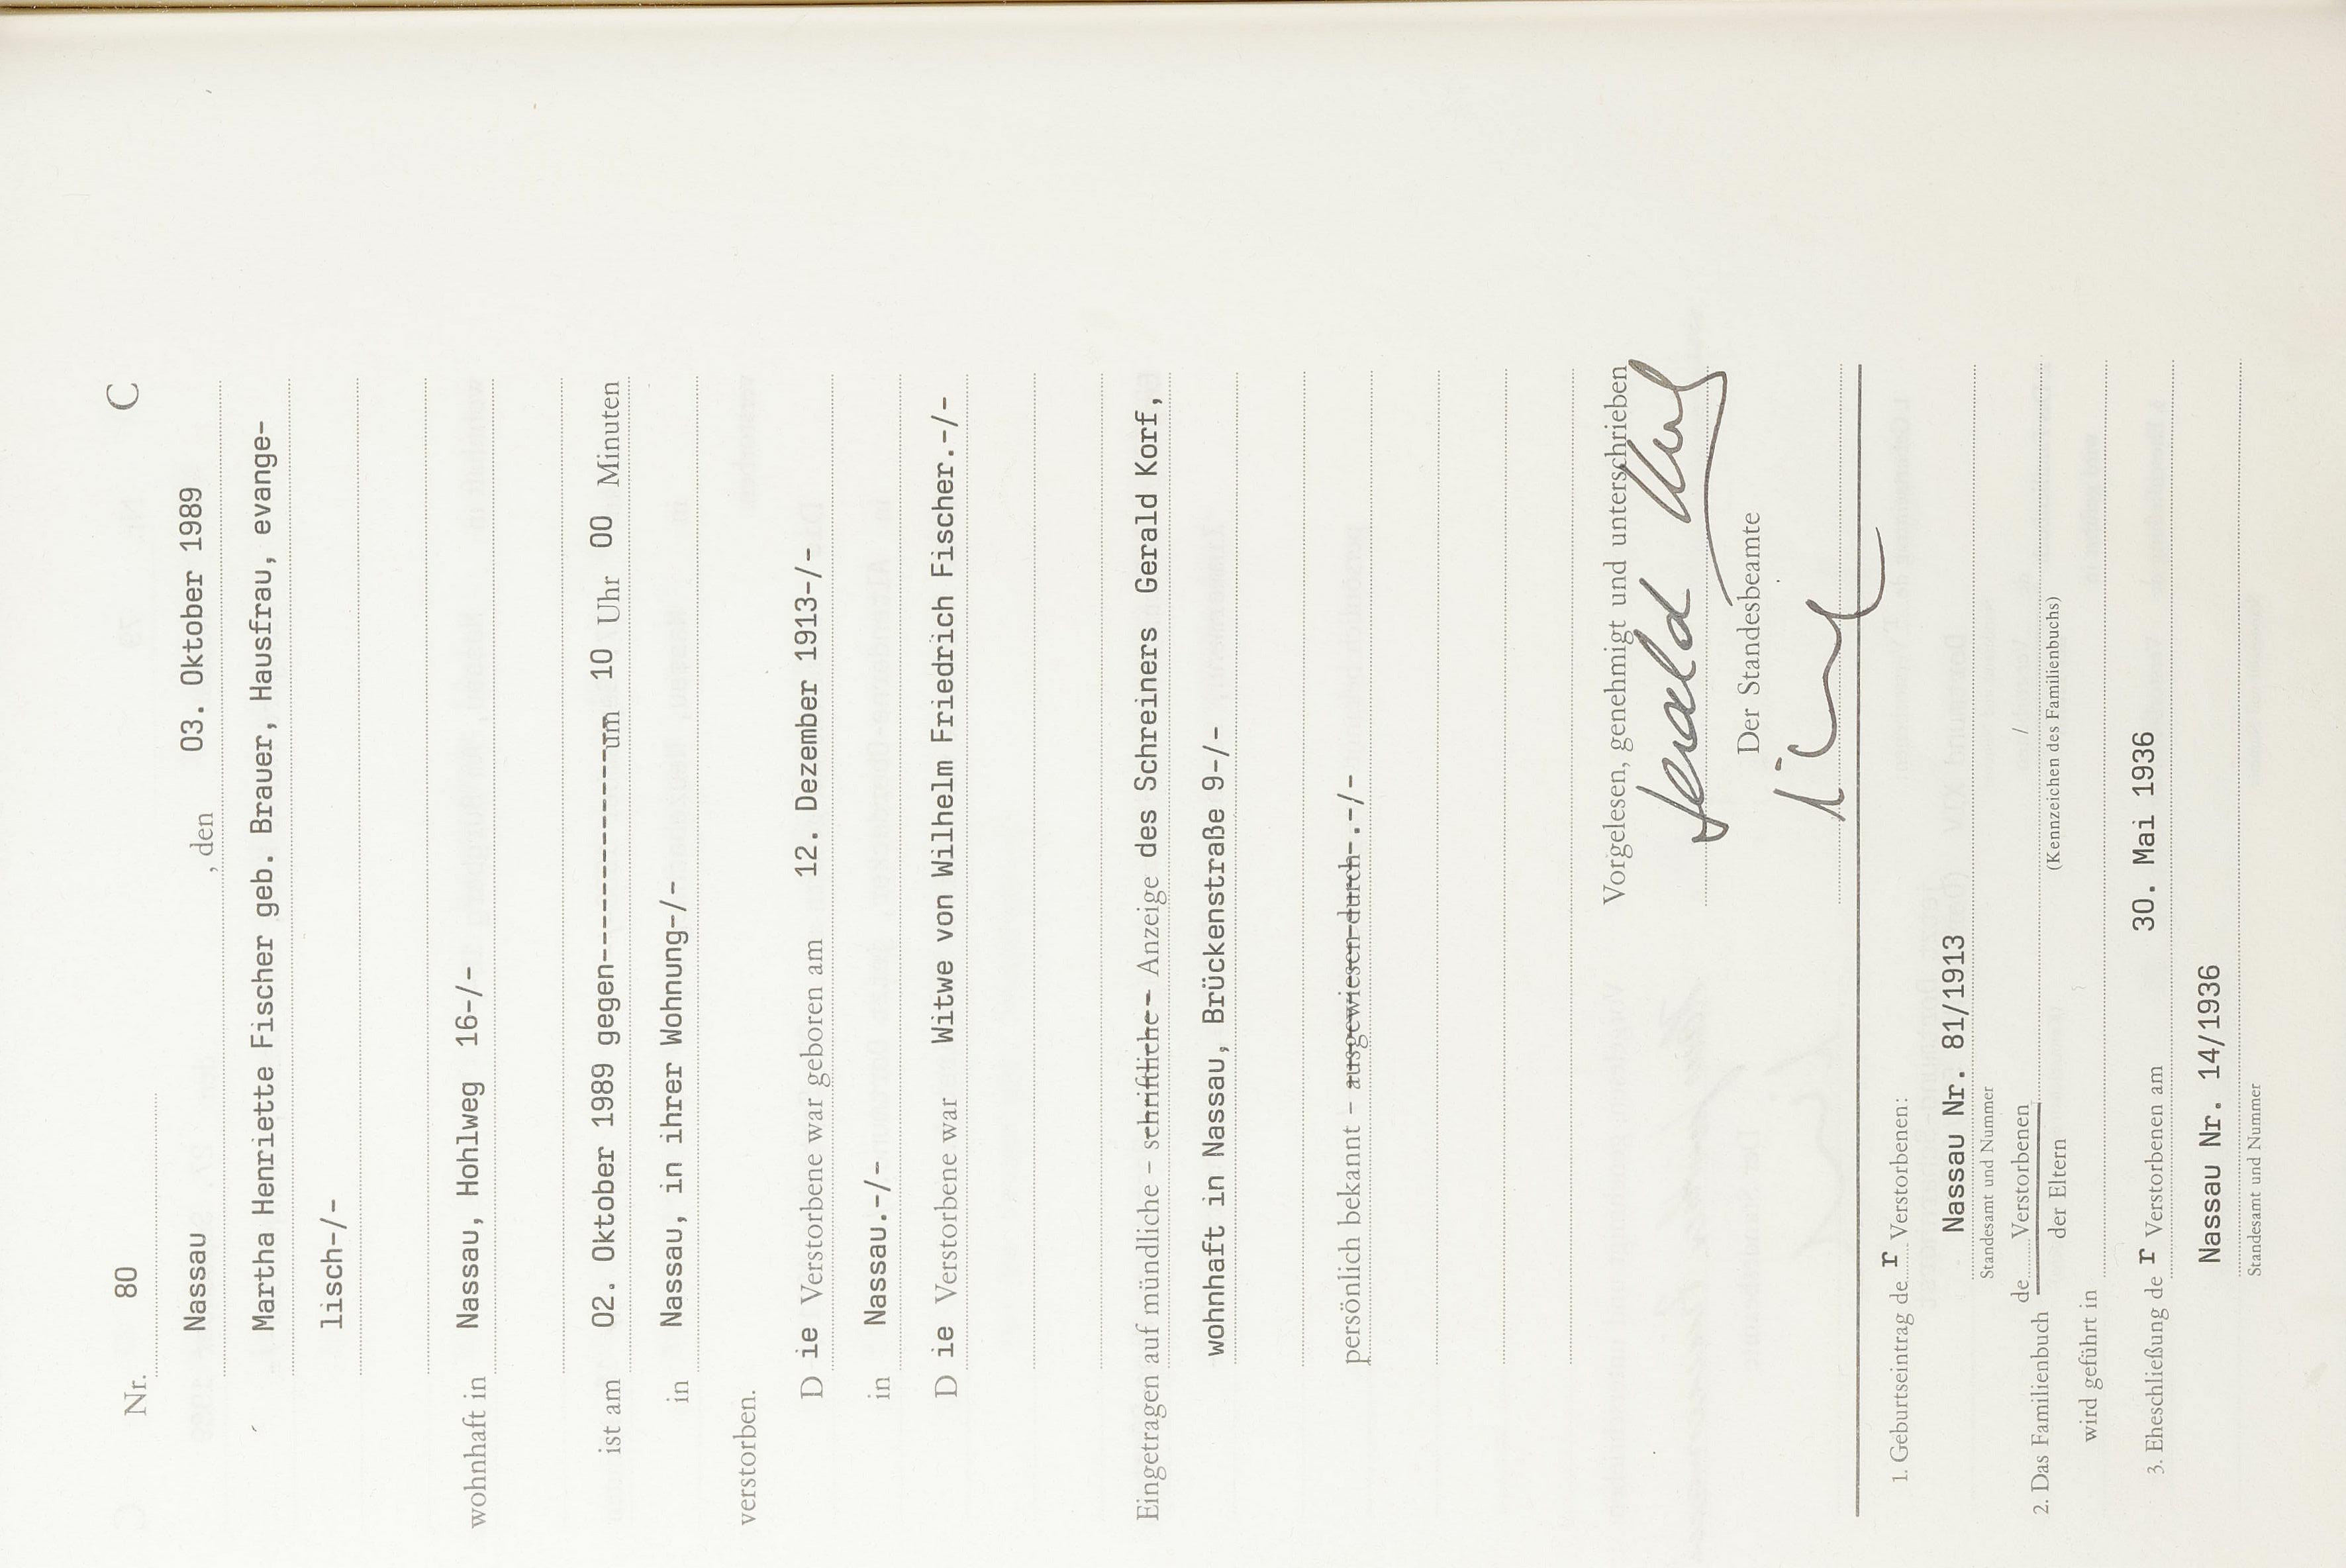 Nr. 80 C
Nassau , den 03. Oktober 1989
Martha Henriette Fischer geb. Brauer, Hausfrau, evange-
lisch-/-
wohnhaft in Nassau, Hohlweg 16-/-
ist am 02. Oktober 1989 gegen---------------um 10 Uhr 00 Minuten
in Nassau, in ihrer Wohnung-/-
verstorben.
D ie Verstorbene war geboren am 12. Dezember 1913-/-
in Nassau.-/-
D ie Verstorbene war Witwe von Wilhelm Friedrich Fischer.-/-
Eingetragen auf mündliche – schriftliche- Anzeige des Schreiners Gerald Korf,
wohnhaft in Nassau, Brückenstraße 9-/-
persönlich bekannt – ausgewiesen durch-.-/-
Vorgelesen, genehmigt und unterschrieben
Gerald
Der Standesbeamte
1. Geburtseintrag de r Verstorbenen:
Nassau Nr. 81/1913
Standesamt und Nummer
2. Das Familienbuch de Verstorbenen /
der Eltern (Kennzeichen des Familienbuchs)
wird geführt in
3. Eheschließung de r Verstorbenen am 30. Mai 1936
Nassau Nr. 14/1936
Standesamt und Nummer